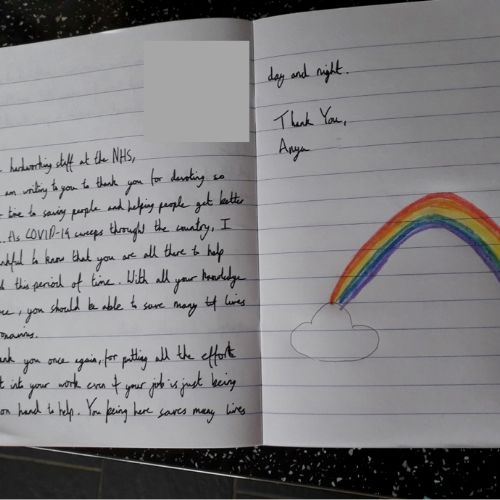 hardworking stuff at the NHS,
am writing to you to thank you for devoting so
time to saving people and helping people get better
As COVID-19 sweeps throught the country, I
nkful to know that you are all there to help
this period of time. With all your knowledge
ce, you should be able to save many lives
onavirus.
ank you once again, for putting all the efforts
t into your work even if your job is just being
on hand to help. You being here saves many lives
day and night.
Thank You,
Anya